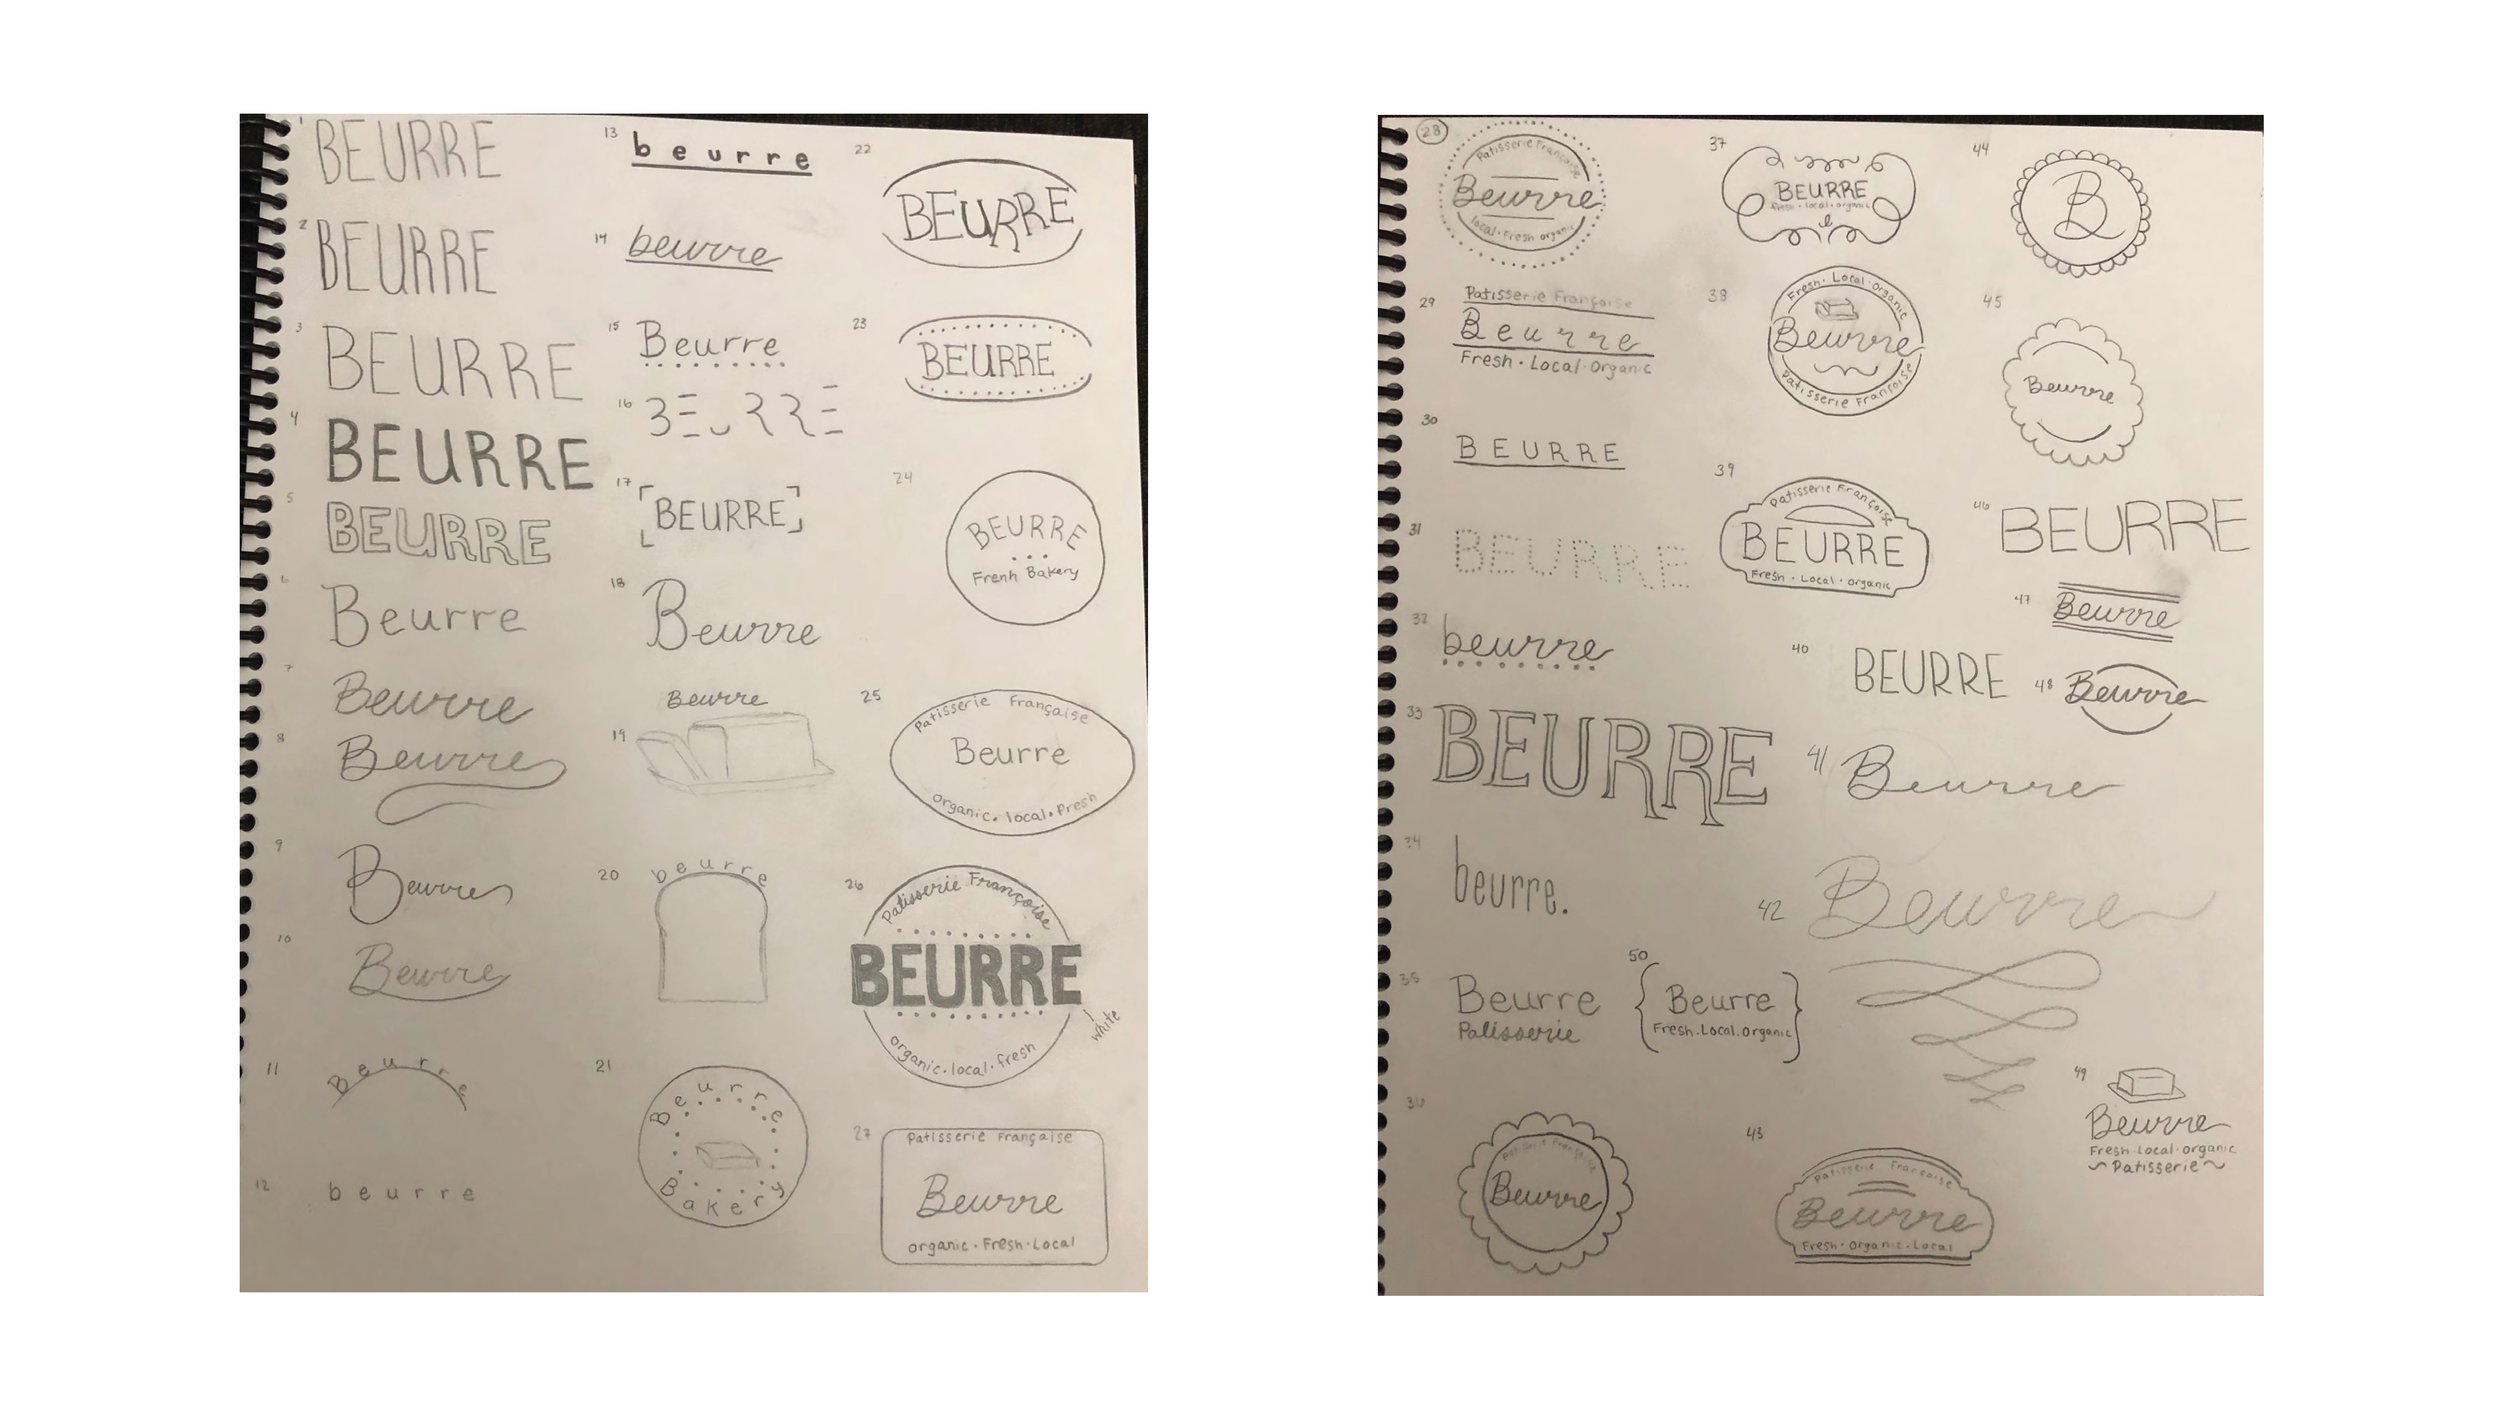 1
BEURRE
2
BEURRE
3
BEURRE
4
BEURRE
5
BEURRE
6
Beurre
7
Beurre
8
Beurre
9
Beurre
10
Beurre
11
Beurre
12
beurre
13
beurre
14
beurre
15
Beurre
16
BEURRE
17
BEURRE
18
Beurre
19
Beurre
20
beurre
21
Beurre
Bakery
22
BEURRE
23
BEURRE
24
BEURRE
Frenh Bakery
25
Patisserie Française
Beurre
organic. local. fresh
26
Patisserie Françoise
BEURRE
white
organic. local. fresh
27
Patisserie Française
Beurre
organic · Fresh · Local
28
Patisserie Française
Beurre
local · Fresh organic
29
Patisserie Françoise
Beurre
Fresh · Local · Organic
30
BEURRE
31
BEURRE
32
beurre
33
BEURRE
34
beurre.
35
Beurre
Patisserie
36
Beurre
37
BEURRE
fresh · local · organic
38
Fresh · Local · Organic
Beurre
Patisserie Françoise
39
Patisserie Françoise
BEURRE
Fresh · Local · organic
40
BEURRE
41
Beurre
42
Beurre
43
Patisserie Françoise
Beurre
Fresh · Organic · Local
44
B
45
Beurre
46
BEURRE
47
Beurre
48
Beurre
49
Beurre
Fresh · local · organic
~Patisserie~
50
{Beurre
Fresh. Local. Organic}